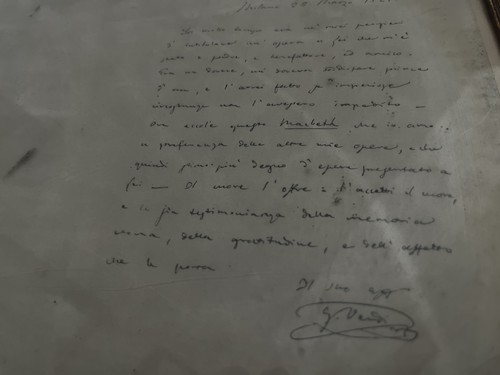 Da molto tempo era ne' miei pensieri
d'intitolare un' opera a Lei che m'è
stato e padre, e benefattore, ed amico.
Era un dovere, cui dovevo soddisfare prima
d'ora, e l'avrei fatto se imperiose
circostanze non l'avessero impedito —
Ora eccole questo Macbeth che io amo
a preferenza delle altre mie opere, e che
quindi stimo più degno d'essere presentato a
Lei — Il cuore l'offre: l'accetti il cuore,
e le sia testimonianza della memoria
eterna, della gratitudine, e dell' affetto
che le porta
Il suo aff
G. Verdi